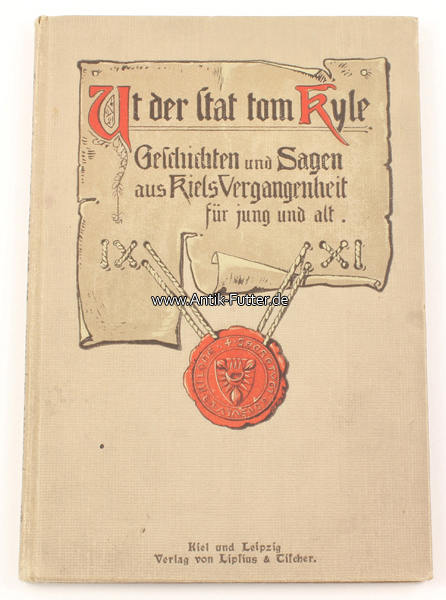 Ut der Stat tom Kyle
Geschichten und Sagen
aus Kiels Vergangenheit
für jung und alt.
IX XI
www.Antik-Futter.de
Kiel und Leipzig
Verlag von Lipsius & Tischer.